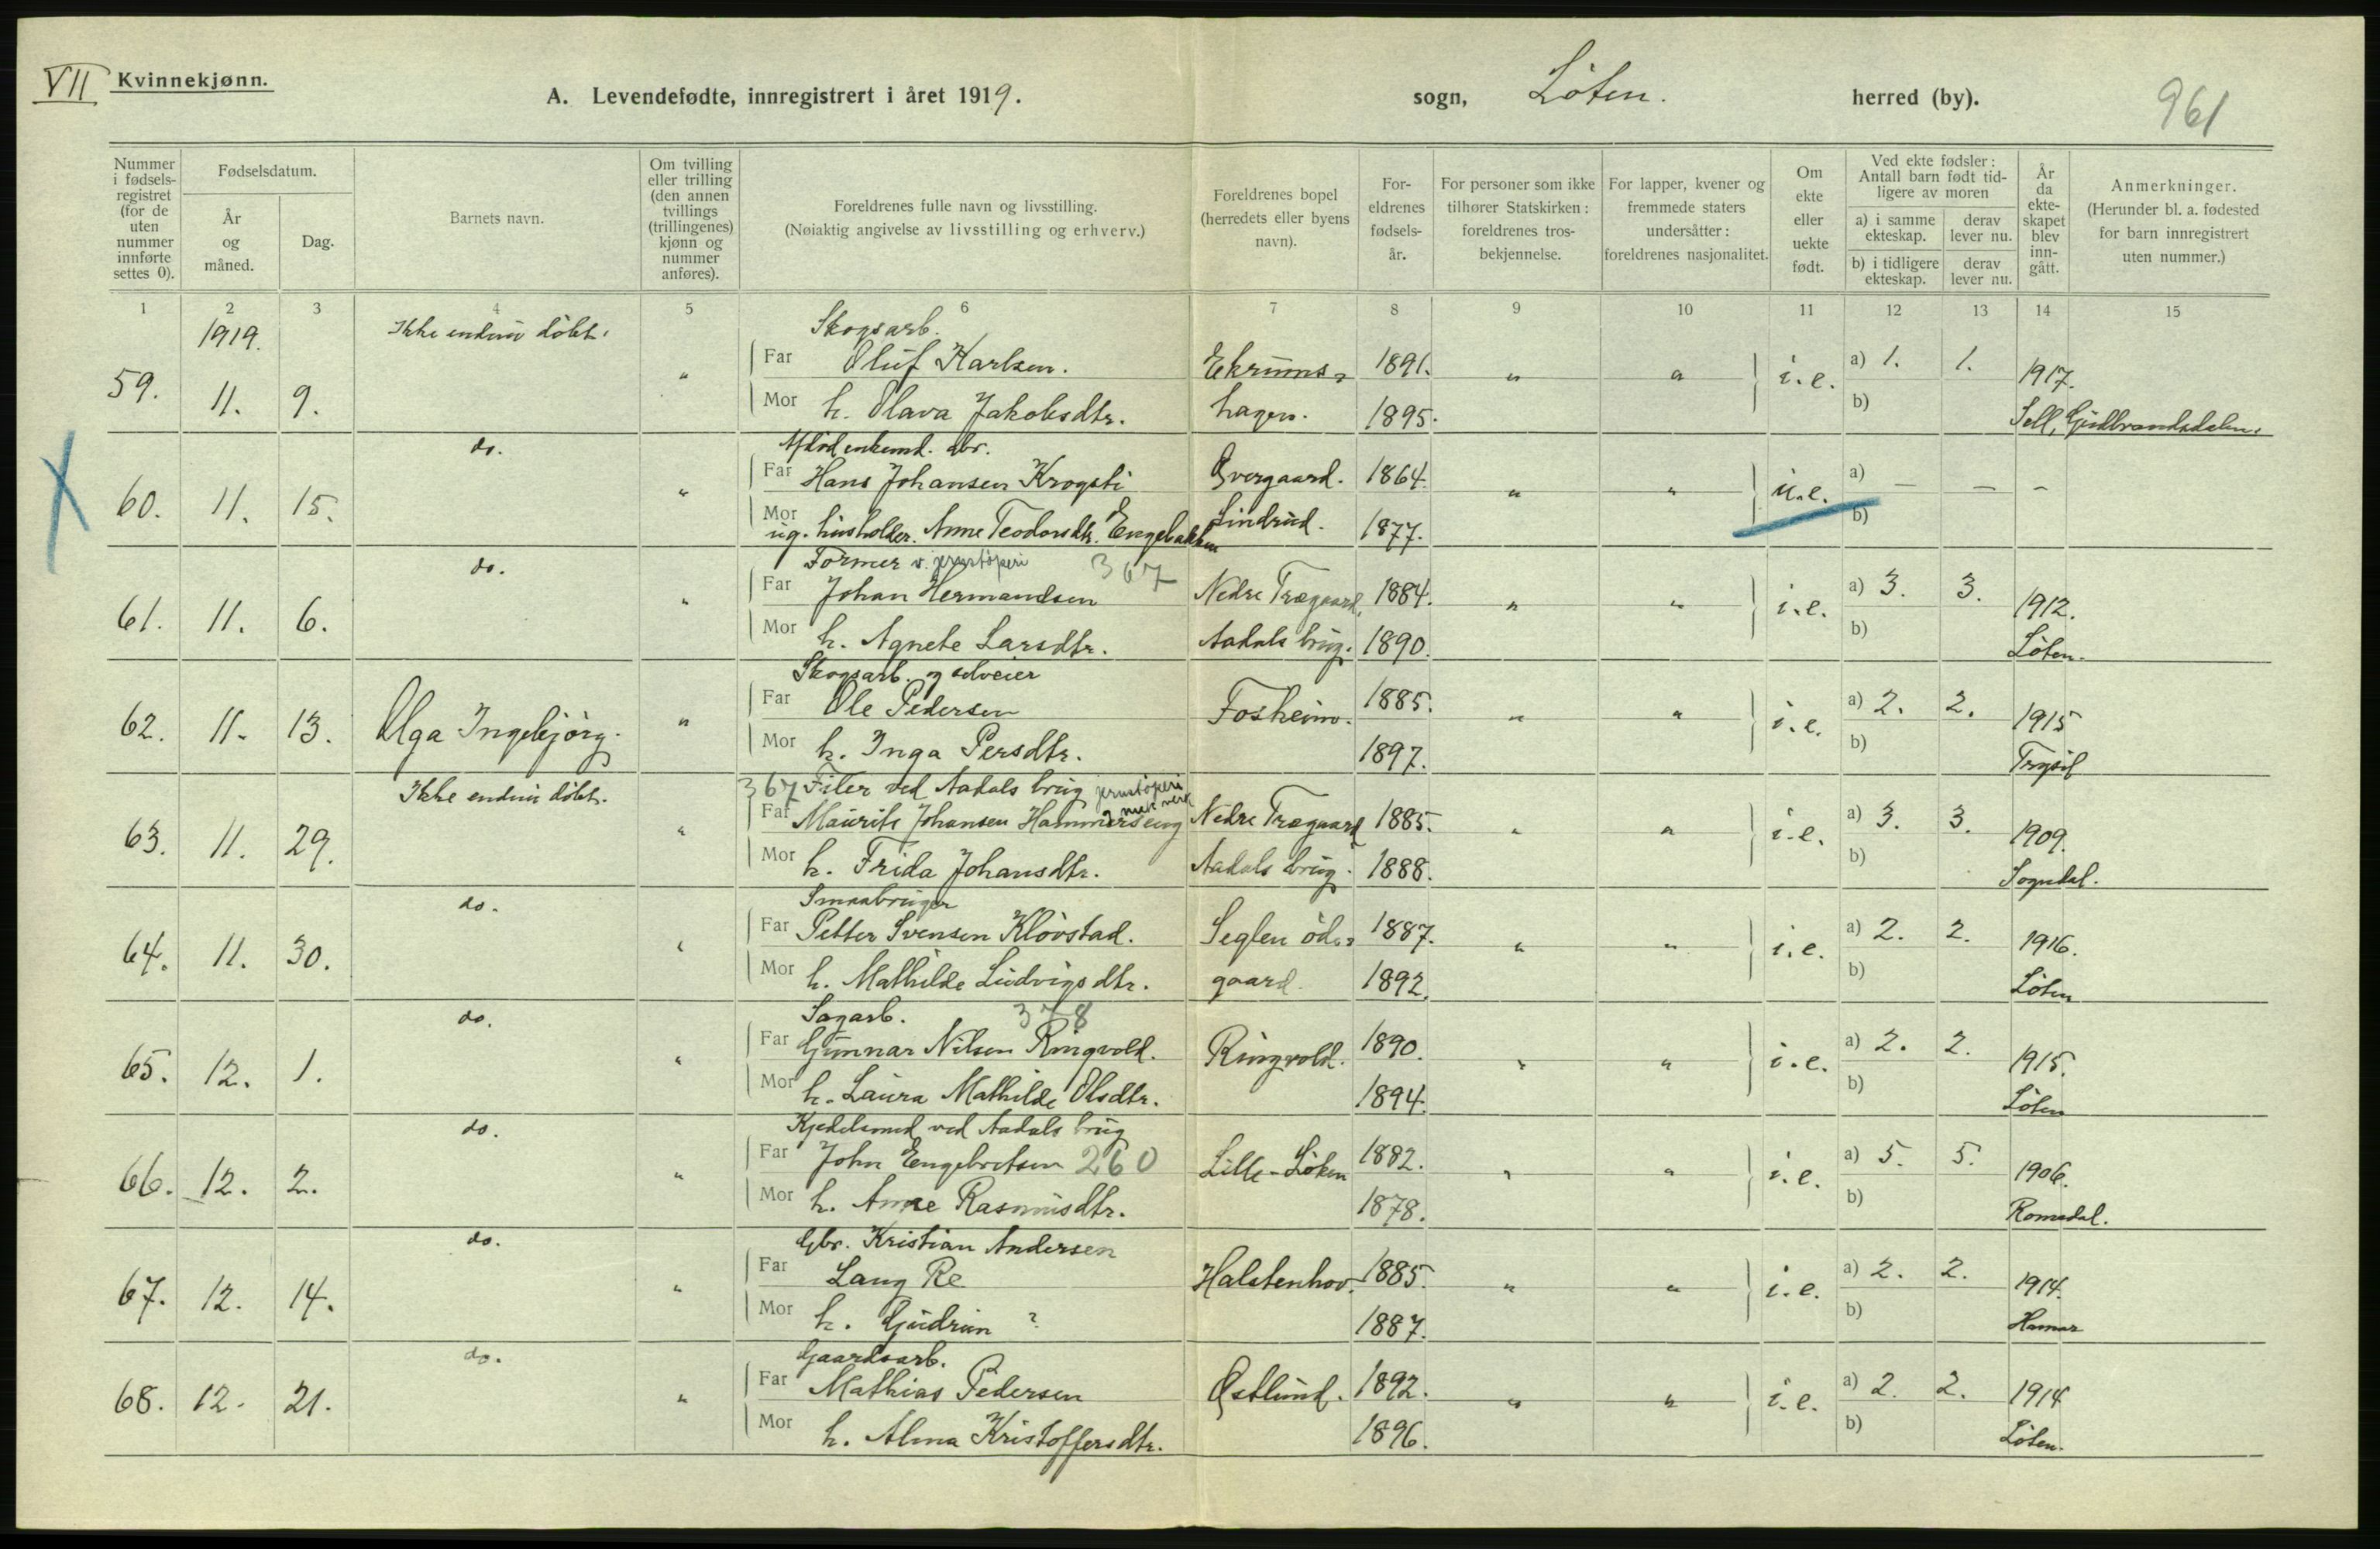 VII Kvinnekjønn.
A. Levendefødte, innregistrert i året 1919.
sogn, Löten. herred (by).
961
Nummer i fødsels-registret (for de uten nummer innførte settes 0).
Fødselsdatum.
År og måned.
Dag.
Barnets navn.
Om tvilling eller trilling (den annen tvillings (trillingenes) kjønn og nummer anføres).
Foreldrenes fulle navn og livsstilling.
(Nøiaktig angivelse av livsstilling og erhverv.)
Foreldrenes bopel (herredets eller byens navn).
For-eldrenes fødsels-år.
For personer som ikke tilhører Statskirken: foreldrenes tros-bekjennelse.
For lapper, kvener og fremmede staters undersåtter: foreldrenes nasjonalitet.
Om ekte eller uekte født.
Ved ekte fødsler: Antall barn født tid-ligere av moren
a) i samme ekteskap.
derav lever nu.
b) i tidligere ekteskap.
derav lever nu.
År da ekte-skapet blev inn-gått.
Anmerkninger.
(Herunder bl. a. fødested for barn innregistrert uten nummer.)
1 2 3 4 5 6 7 8 9 10 11 12 13 14 15
1919. Ikke endnu döbt. Skogsarb.
59. 11. 9. " Far Oluf Karlsen. Ekrums- 1891. " " i.e. a) 1. 1. 1917.
Mor h. Olava Jakobsdtr. hagen. 1895. b) Sell, Gudbrandsdalen.
do. gbr.
60. 11. 15. " Far Hans Johansen Krogsti Øvergaard. 1864. " " u.e. a) — — –
Mor ug. husholder. Anne Teodorsdtr. Engebakken Lindrud. 1877. b)
do. Former v. jernstöperi 367
61. 11. 6. " Far Johan Hermandsen Nedre Træguard, 1884. " " i.e. a) 3. 3. 1912.
Mor h. Agnete Larsdtr. Aadals brug. 1890. b) Löten.
Skogsarb. og selveier
62. 11. 13. Olga Ingebjörg. " Far Ole Pedersen Fosheim. 1885. " " i.e. a) 2. 2. 1915
Mor h. Inga Persdtr. 1897. b) Trysil
Ikke endnu döbt. 367 Filer ved Aadals brug jernstöperi og mek verk
63. 11. 29. " Far Maurits Johansen Hammerseng Nedre Træguard 1885. " " i.e. a) 3. 3. 1909.
Mor h. Frida Johansdtr. Aadals brug. 1888. b) Sogndal.
do. Smaabruger
64. 11. 30. " Far Petter Svensen Klövstad. Seglen öde- 1887. " " i.e. a) 2. 2. 1916.
Mor h. Mathilde Ludvigsdtr. gaard. 1892. b) Löten
do. Sagarb. 378
65. 12. 1. " Far Gunnar Nilsen Ringvold. Ringvold. 1890. " " i.e. a) 2. 2. 1915.
Mor h. Laura Mathilde Olsdtr. 1894. b) Löten
do. Kjedelsmed ved Aadals brug
66. 12. 2. " Far John Engebretsen 260 Lille-Löken 1882. " " i.e. a) 5. 5. 1906.
Mor h. Anne Rasmusdtr. 1878. b) Romsdal.
do. Gbr. Kristian Andersen
67. 12. 14. " Far Lang Re Halstenhov. 1885. " " i.e. a) 2. 2. 1914.
Mor h. Gudrun ? 1887. b) Hamar
do. Gaardsarb.
68. 12. 21. " Far Mathias Pedersen Østlund. 1892. " " i.e. a) 2. 2. 1914
Mor h. Alma Kristoffersdtr. 1896. b) Löten.